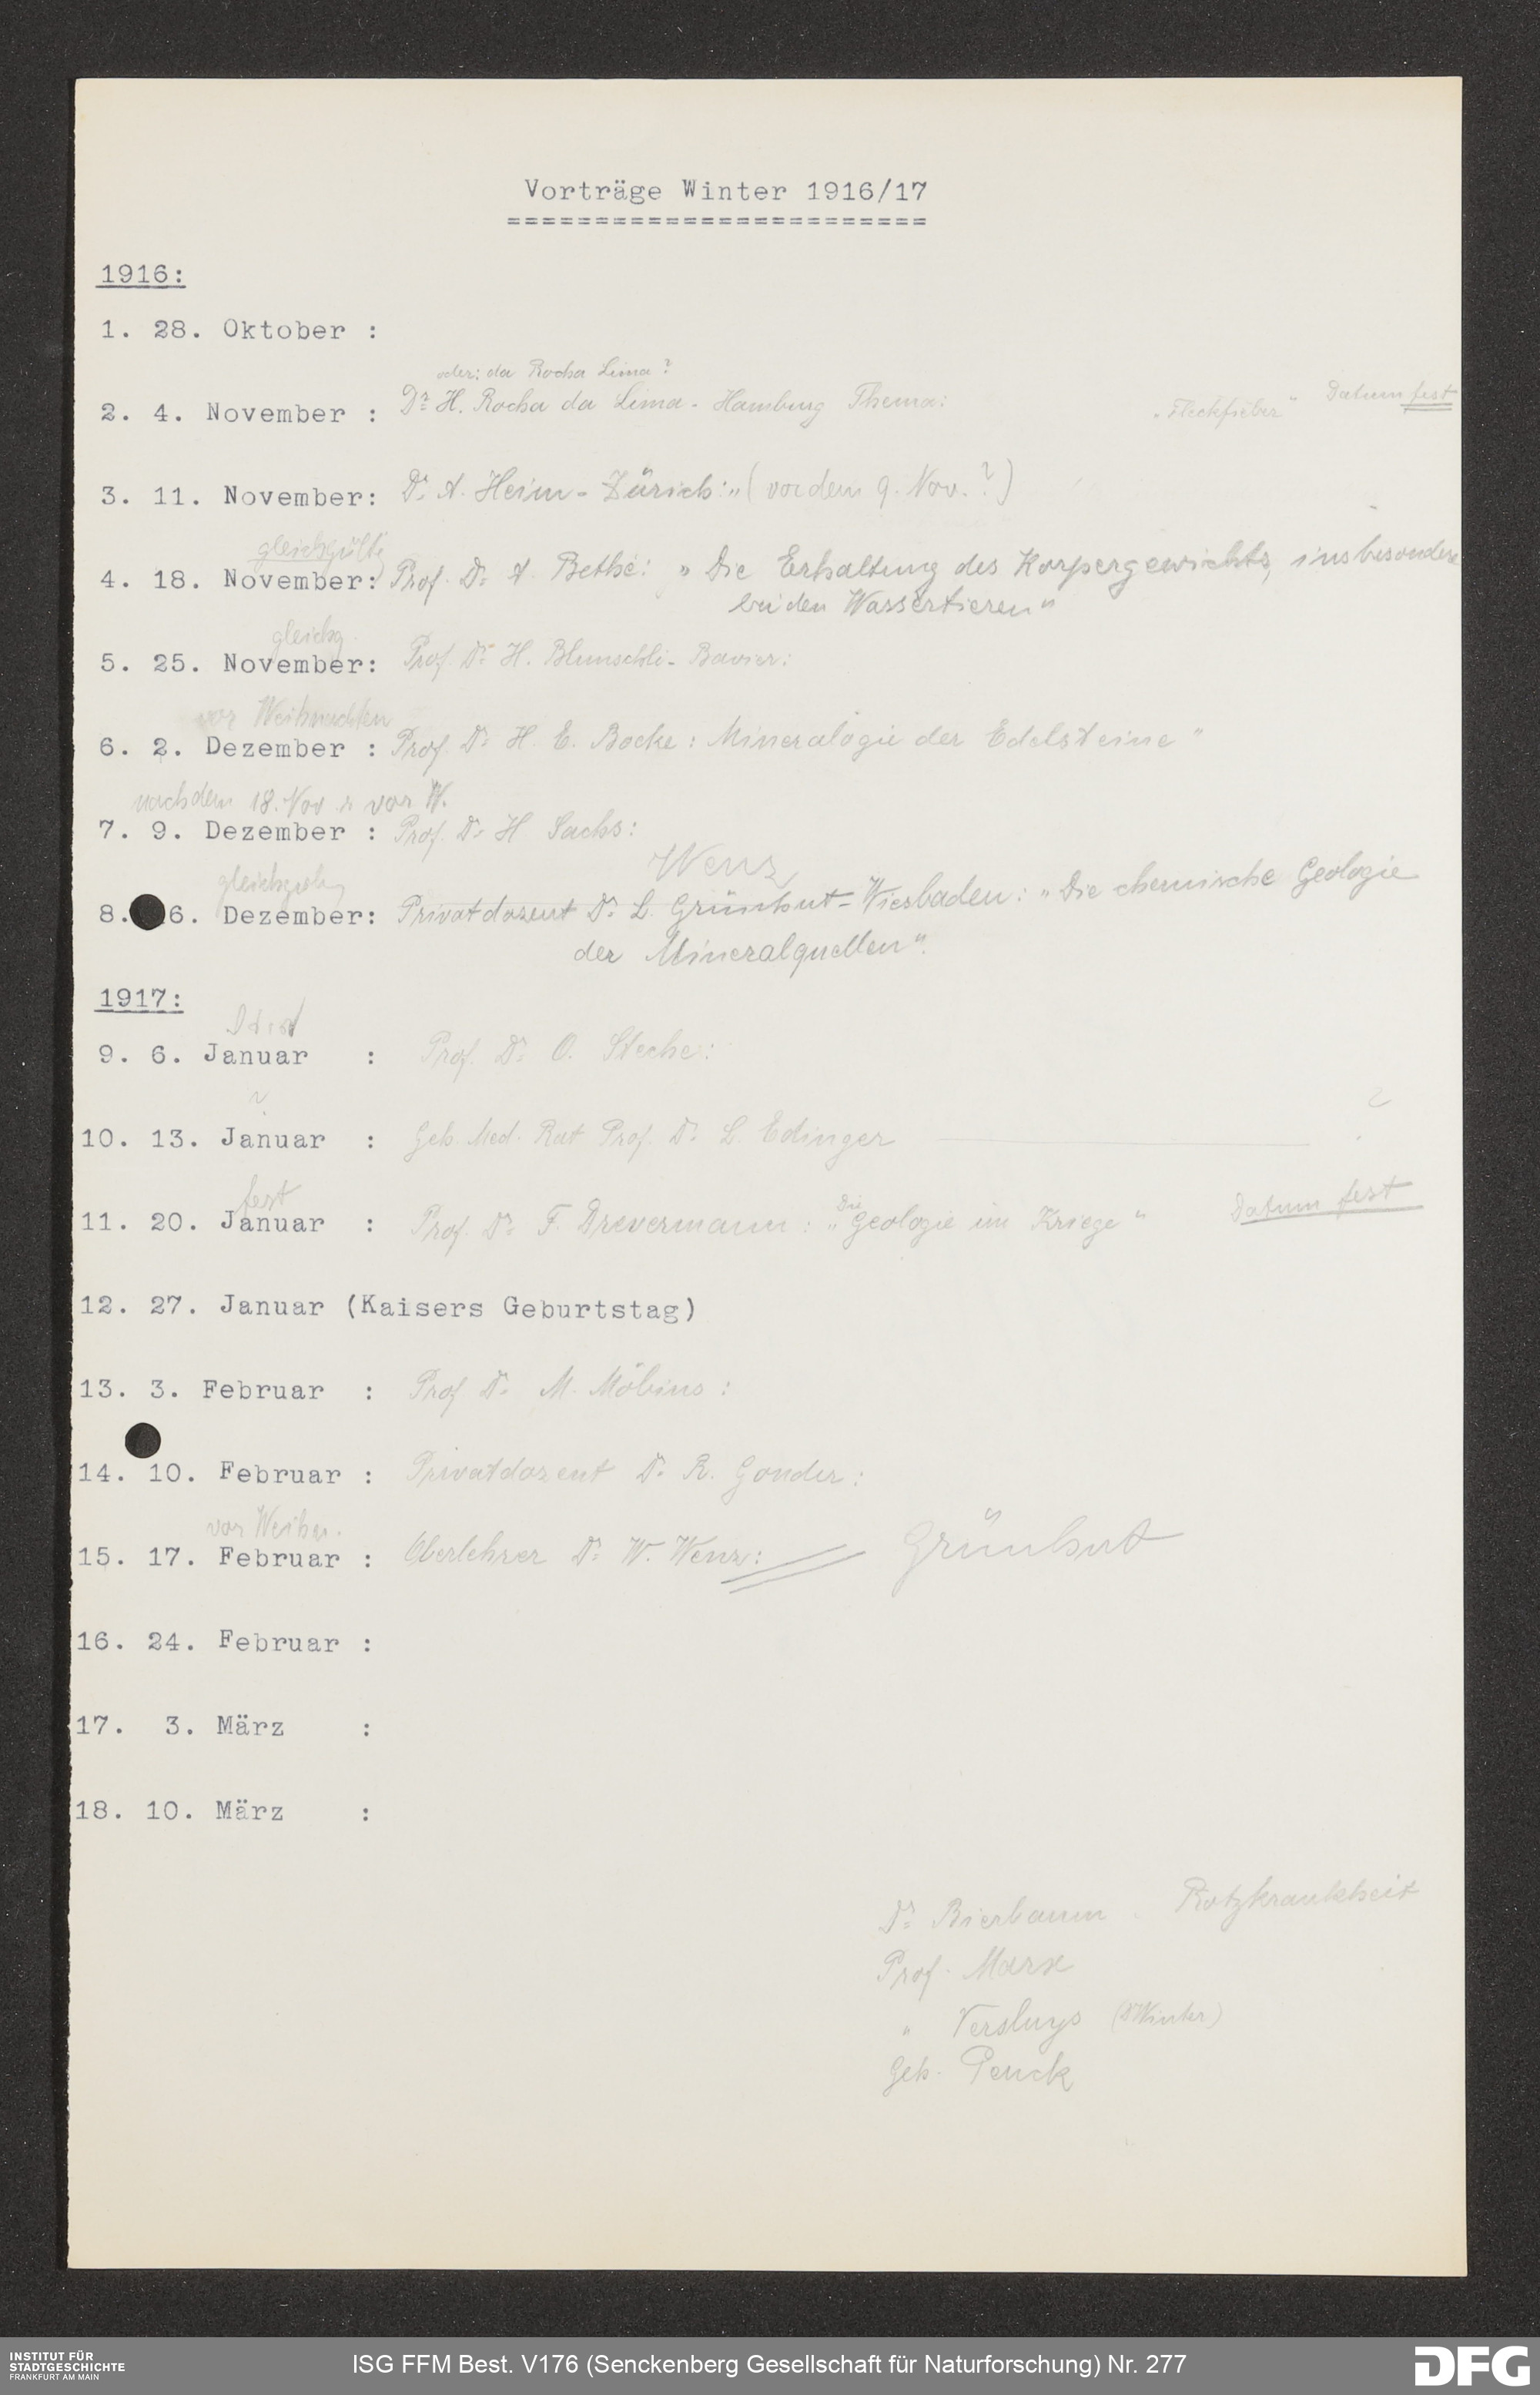 Vorträge Winter 1916/17
========================
1916:
1. 28. Oktober :
oder: da Rocha Lima?
2. 4. November : Dr. H. Rocha da Lima - Hamburg Thema: „Fleckfieber" Datum fest
3. 11. November: Dr. A. Heim - Zürich: „ (vor dem 9. Nov.?)
gleichgültig
4. 18. November: Prof. Dr. A. Bethe: „Die Erhaltung des Körpergewichts, insbesondere
bei den Wassertieren"
gleichg.
5. 25. November: Prof. Dr. H. Bluntschli - Bavier:
vor Weihnachten
6. 2. Dezember : Prof. Dr. H. E. Boeke: Mineralogie der Edelsteine"
nach dem 18. Nov u vor W.
7. 9. Dezember : Prof. Dr. H Sachs:
gleichgültig Wenz
8. 6. Dezember: Privatdozent Dr. L. Grünhut - Wiesbaden: „Die chemische Geologie
der Mineralquellen".
1917:
9. 6. Januar : Prof. Dr. O. Steche:
?
10. 13. Januar : Geh. Med. Rat Prof. Dr. L. Edinger ?
fest
11. 20. Januar : Prof. Dr. F. Drevermann: „Die Geologie im Kriege" Datum fest
12. 27. Januar (Kaisers Geburtstag)
13. 3. Februar : Prof Dr. M. Möbius:
14. 10. Februar : Privatdozent Dr. R. Gonder:
vor Weihn.
15. 17. Februar : Oberlehrer Dr. W. Wenz: Grünhut
16. 24. Februar :
17. 3. März :
18. 10. März :
Dr. Bierbaum. Rotzkrankheit
Prof. Marx
" Versluys (Winter)
Geh. Penck
INSTITUT FÜR
STADTGESCHICHTE
FRANKFURT AM MAIN
ISG FFM Best. V176 (Senckenberg Gesellschaft für Naturforschung) Nr. 277
DFG